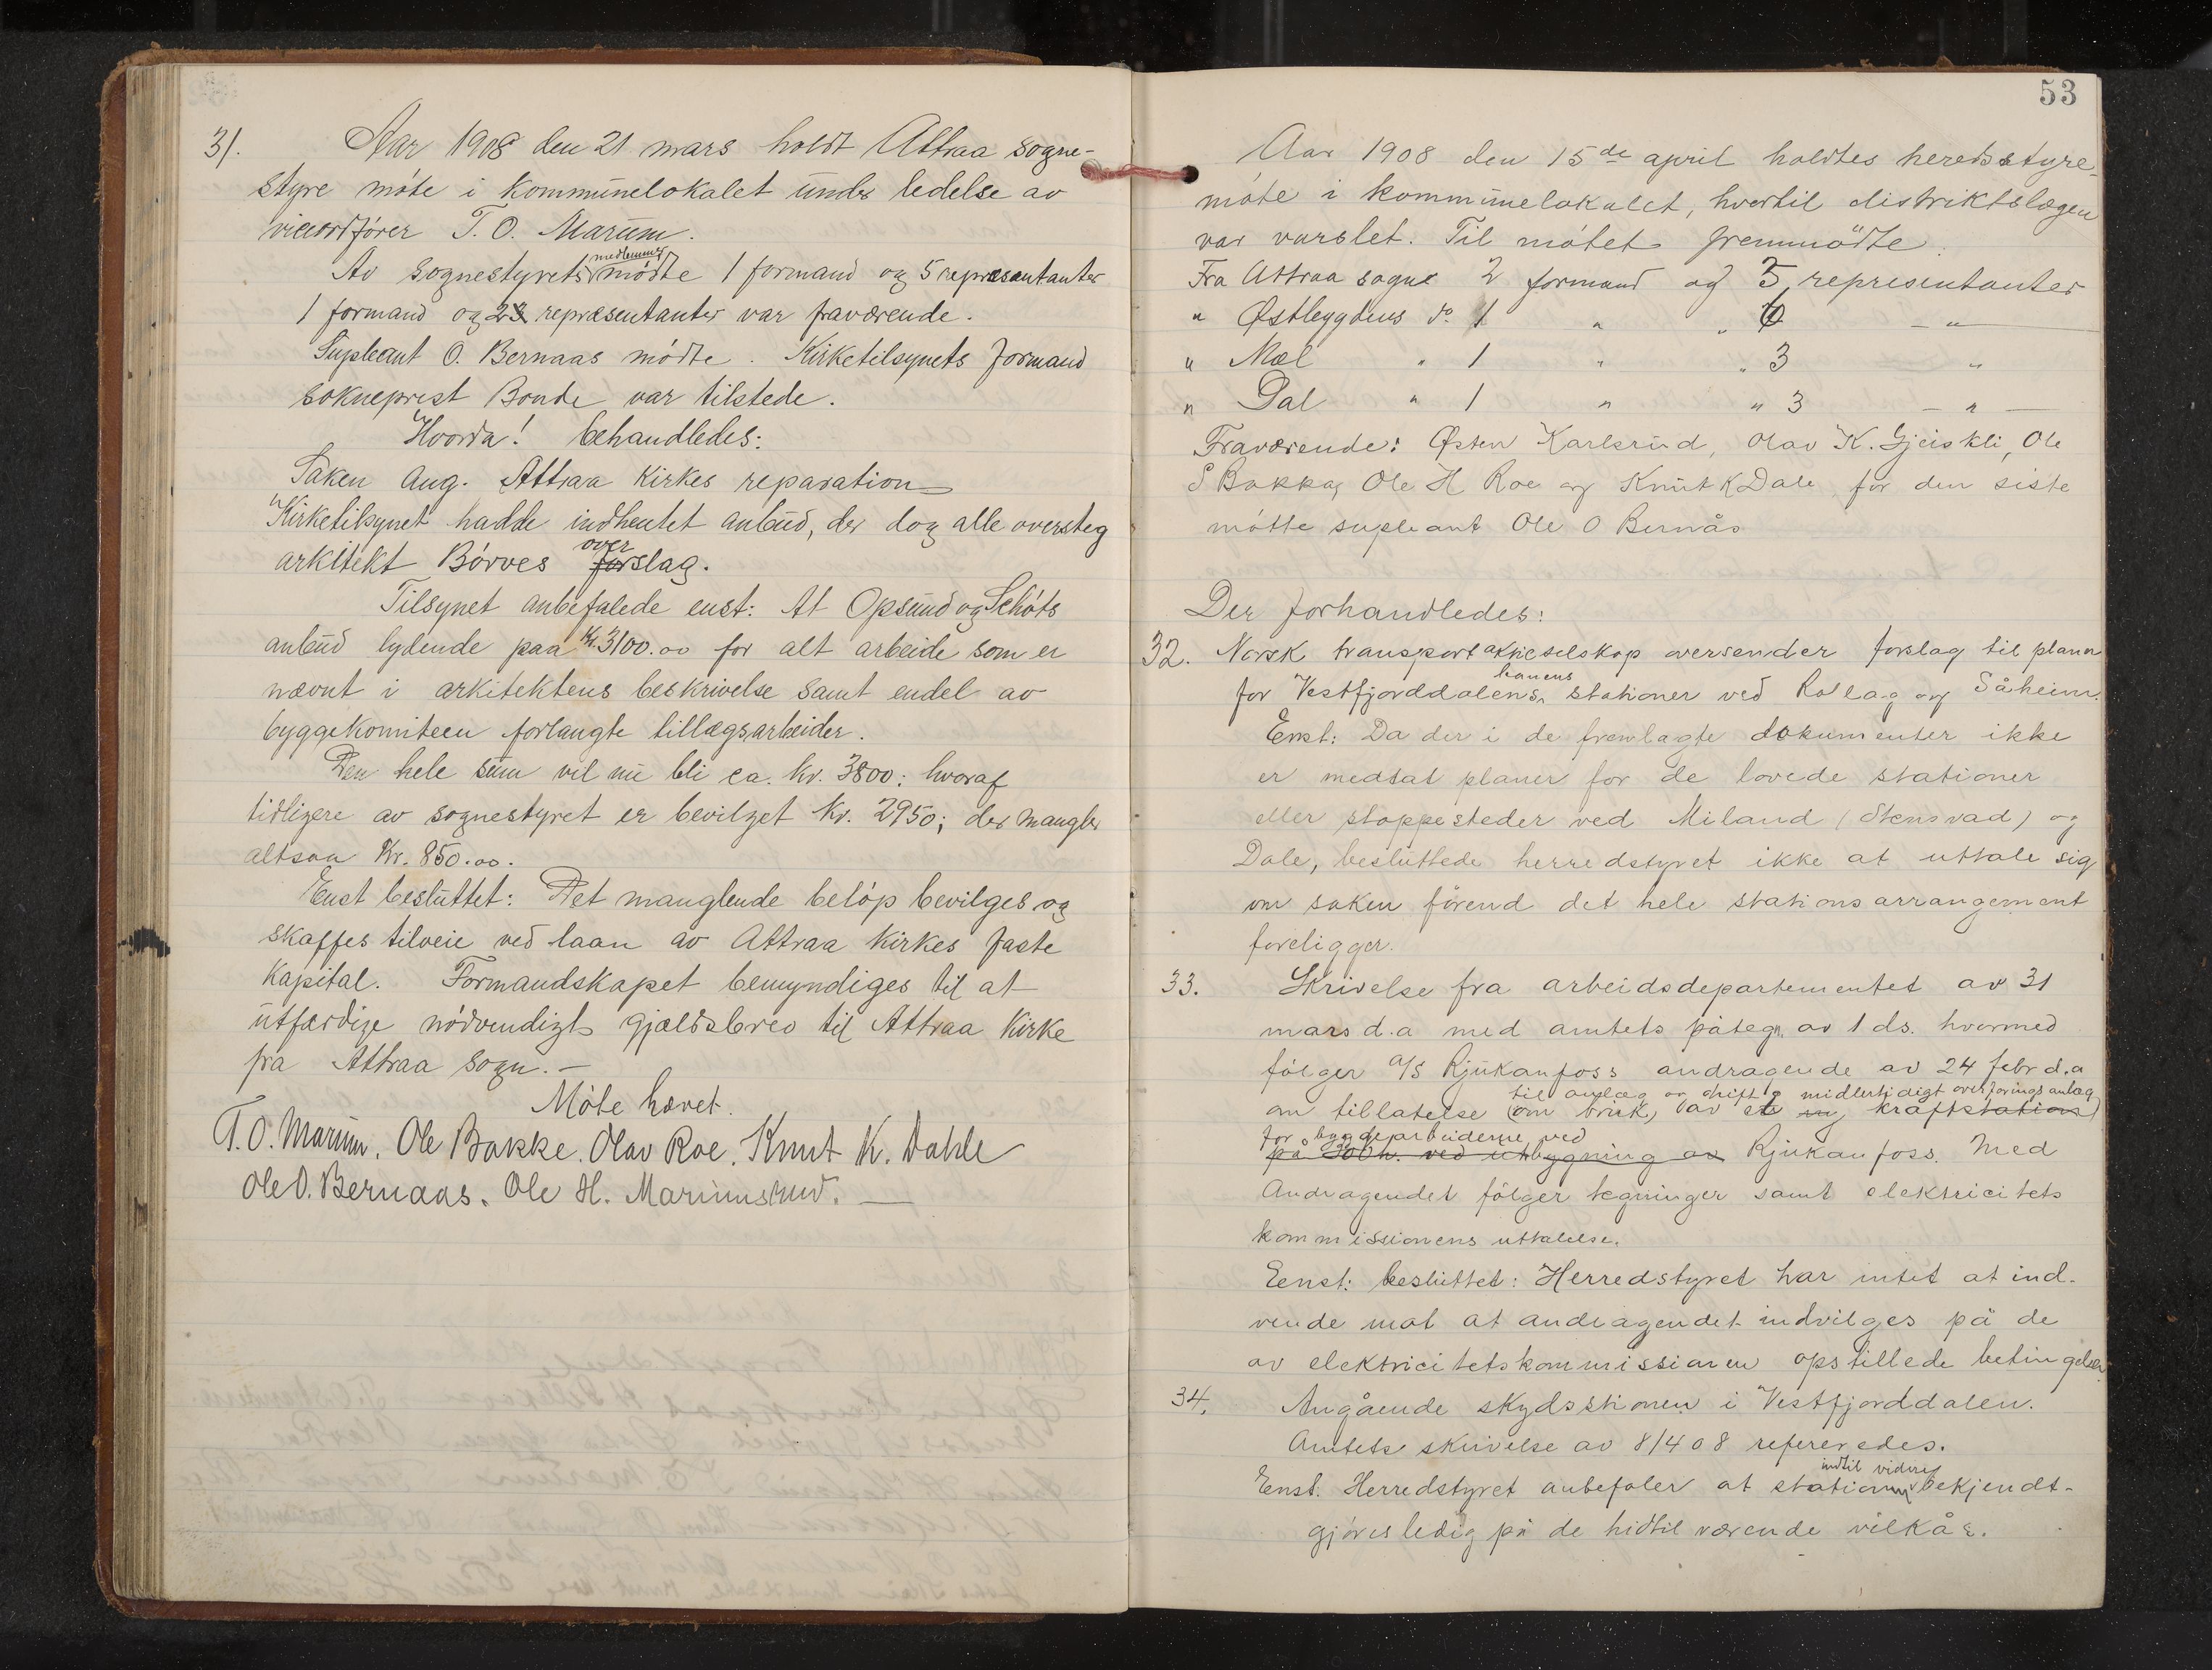 31. Aar 1908 den 21 mars holdt Attraa sogne-
styre møte i kommunelokalet under ledelse av
viceordfører T. O. Marum.
Av sognestyrets medlemmer mødte 1 formand og 5 repræsentanter
1 formand og 2 repræsentanter var fraværende.
Supleant O. Bernaas mødte. Kirketilsynets formand
sokneprest Bonde var tilstede.
Hvorda! behandledes:
Saken ang. Attraa Kirkes reparation
Kirketilsynet hadde indhentet anbud, der dog alle oversteg
arkitekt Børves overslag.
Tilsynet anbefalede enst: At Opsund og Schøts
anbud lydende paa Kr. 3100.00 for alt arbeide som er
nævnt i arkitektens beskrivelse samt endel av
byggekomiteen forlangte tillægsarbeider.
Den hele sum vil nu bli ca. kr. 3800: hvoraf
tidligere av sognestyret er bevilget kr. 2950; der mangler
altsaa Kr. 850.00.
Enst besluttet: Det manglende beløp bevilges og
skaffes tilveie ved laan av Attraa kirkes faste
kapital. Formandskapet bemyndiges til at
utfærdige nødvendigt gjældsbrev til Attraa Kirke
fra Attraa sogn. —
Møte hævet.
T. O. Marum. Ole Bakke. Olav Roe. Knut K. Dahle
Ole O. Bernaas. Ole H. Mariumsrud. —
53
Aar 1908 den 15de april holdtes heredsstyre-
møte i kommunelokalet, hvortil distriktslægen
var varslet. Til møtet fremmødte.
Fra Attraa sogne 2 formænd og 5 representanter
" Østbygdens do. 1 " " — " —
" Mæl " 1 " " 3 "
" Dal " 1 " " 3 — " —
Fraværende: Østen Karlsrud, Olav K. Gjeiskli, Ole
S Bakka, Ole H Roe og Knut K Dale, for den siste
møtte supleant Ole O Bernås
Der forhandledes:
32. Norsk transportaktieselskap oversender forslag til planer
for Vestfjorddalens banens stationer ved Rollag og Såheim.
Enst: Da der i de fremlagte dokumenter ikke
er medtat planer for de lovede stationer
eller stoppesteder ved Miland (Stensvad) og
Dale, besluttede herredstyret ikke at uttale sig
om saken førend det hele stationsarrangement
foreligger.
33. Skrivelse fra arbeidsdepartementet av 31
mars d.a med amtets påtegn. av 1 ds. hvormed
følger a/s Rjukanfoss andragende av 24 febr d.a
til anlæg og drift midlertidigt overføringsanlæg
om tillatelse (om bruk) av et ny kraftstation
for byggearbeiderne ved
på ved utbygning av Rjukanfoss. Med
Andragendet følger tegninger samt elektricitets
kommissionens uttalelse.
Eenst: besluttet: Herredstyret har intet at ind-
vende mot at andragendet indvilges på de
av elektricitetskommissionen opstillede betingelser
34. Angående skydsstionen i Vestfjorddalen.
Amtets skrivelse av 8/4 08 refereredes.
indtil videre
Enst. Herredstyret anbefaler at stationen bekjendt-
gjøres ledig på de hidtil værende vilkår.